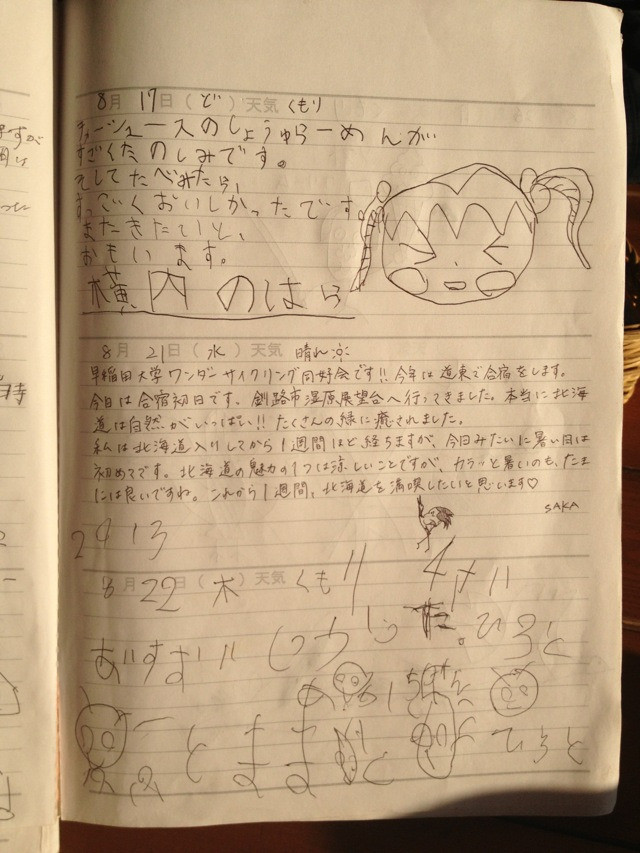 8月 17日 (ど) 天気 くもり
チャーシュースのしょうゅらーめんが
すごくたのしみです。
そしてたべみたら、
すっごくおいしかったです
またきたいと、
おもいます。
横内のはら
8月 21日 (水) 天気 晴れ
早稲田大学ワンダーサイクリング同好会です!! 今年は道東で合宿をします。
今日は合宿初日です。釧路市湿原展望台へ行ってきました。本当に北海
道は自然がいっぱい!! たくさんの緑に癒されました。
私は北海道入りしてから1週間ほど経ちますが、今日みたいに暑い日は
初めてです。北海道の魅力の1つは涼しいことですが、カラッと暑いのも、たま
には良いですね。これから1週間、北海道を満喫したいと思います♡
SAKA
2013
8月 22日 (木) 天気 くもり
ひろと
と まま
ひろと